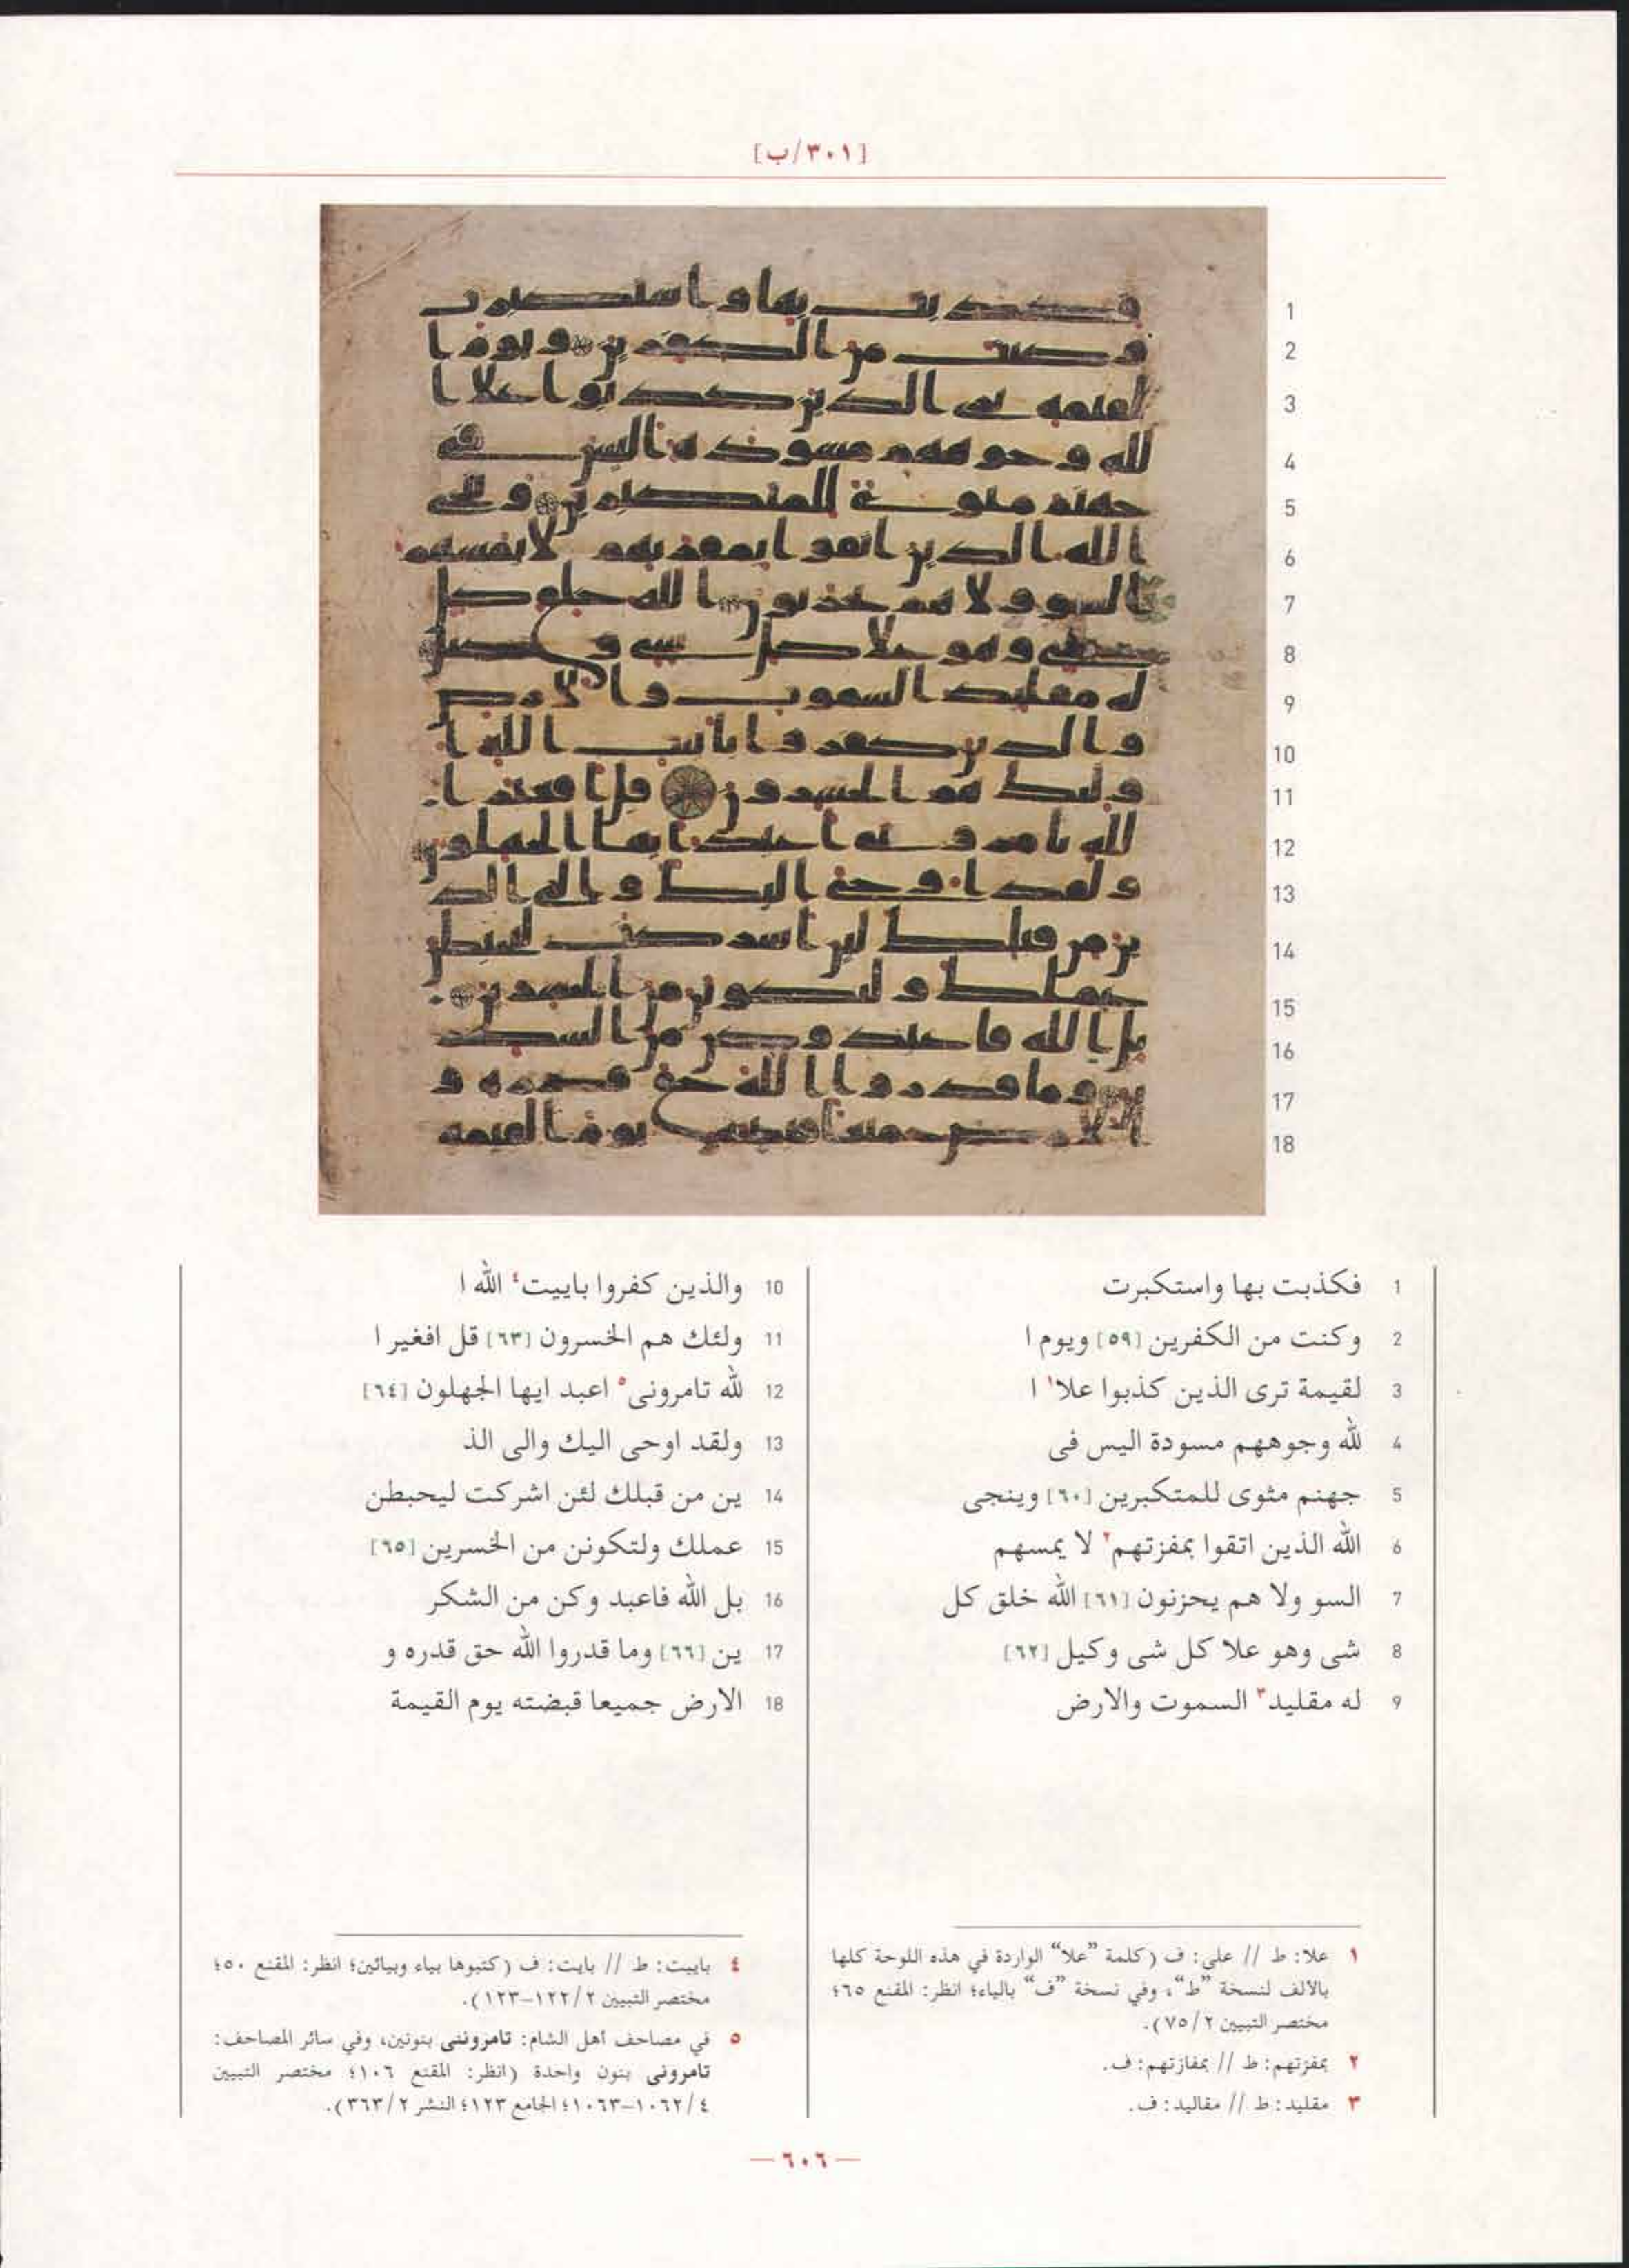 [٣٠١/ب]
1
2
3
4
5
6
7
8
9
10
11
12
13
14
15
16
17
18
1 فكذبت بها واستكبرت
2 وكنت من الكفرين [٥٩] ويوم ا
3 لقيمة ترى الذين كذبوا علا١ ا
4 لله وجوههم مسودة اليس فى
5 جهنم مثوى للمتكبرين [٦٠] وينجى
6 الله الذين اتقوا بمفزتهم٢ لا يمسهم
7 السو ولا هم يحزنون [٦١] الله خلق كل
8 شى وهو علا كل شى وكيل [٦٢]
9 له مقليد٣ السموت والارض
10 والذين كفروا باييت٤ الله ا
11 ولئك هم الخسرون [٦٣] قل افغير ا
12 لله تامرونى٥ اعبد ايها الجهلون [٦٤]
13 ولقد اوحى اليك والى الذ
14 ين من قبلك لئن اشركت ليحبطن
15 عملك ولتكونن من الخسرين [٦٥]
16 بل الله فاعبد وكن من الشكر
17 ين [٦٦] وما قدروا الله حق قدره و
18 الارض جميعا قبضته يوم القيمة
١ علا: ط // على: ف (كلمة “علا” الواردة في هذه اللوحة كلها
بالالف لنسخة “ط”، وفي نسخة “ف” بالياء؛ انظر: المقنع ٦٥؛
مختصر التبيين ٢/ ٧٥).
٢ بمفزتهم: ط // بمفازتهم: ف.
٣ مقليد: ط // مقاليد: ف.
٤ باييت: ط // بايت: ف (كتبوها بياء وبيائين؛ انظر: المقنع ٥٠؛
مختصر التبيين ٢/ ١٢٢-١٢٣).
٥ في مصاحف أهل الشام: تامروننى بنونين، وفي سائر المصاحف:
تامرونى بنون واحدة (انظر: المقنع ١٠٦؛ مختصر التبيين
٤/ ١٠٦٢-١٠٦٣؛ الجامع ١٢٣؛ النشر ٢/ ٣٦٣).
— ٦٠٦ —